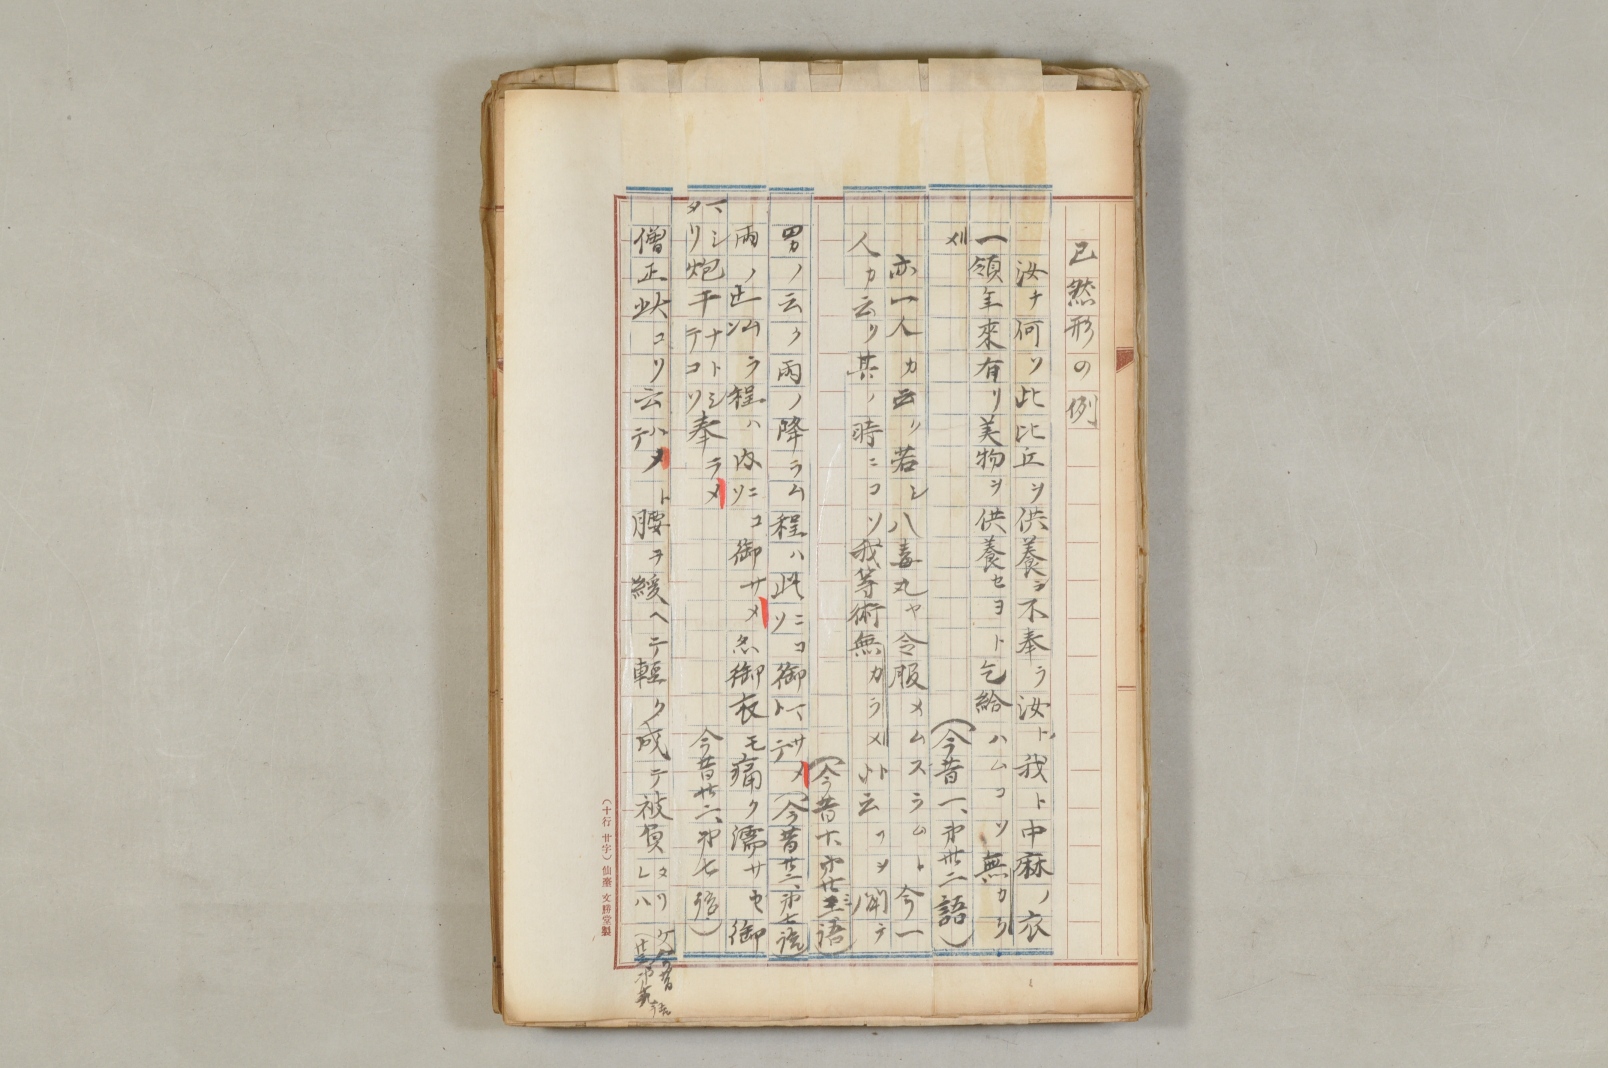 已然形の例
汝ナ何ソ此比丘ヲ供養ヲ不奉ラ汝ト我ト中麻ノ衣
一領年來有リ美物ヲ供養セヨト乞給ハムコソ無カラ
メ (今昔一、第卅二語)
亦一人カ云ク若シ八毒丸ヤ令服メムスラムト今一
人カ云リ其ノ時ニコソ我等術無カラメト云フヲ聞テ
(今昔十、第廿三語)
男ノ云ク雨ノ降ラム程ハ此ニコソ御マサメトテ (今昔廿二、第七話)
雨ノ止ラム程ハ内ニコソ御サメ 御衣モ痛ク濡サセ御
マシタリ炮干ナトシテコソ奉ラメ 今昔廿二、第七語)
僧正此コソ云ハメトテ腰ヲ緩ヘテ輕ク成テ被負タリケレハ (今昔廿三
(十行 廿字) 仙臺 文勝堂製